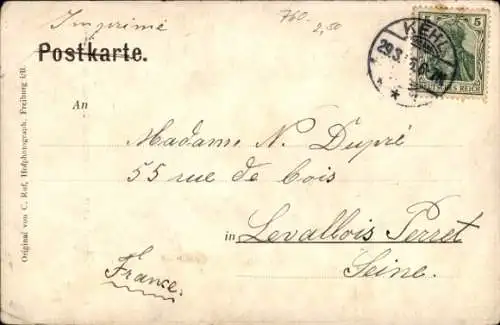 Imprimé
760
2,50
Postkarte.
KEHL
29.3.
5
DEUTSCHES REICH
An
Madame N. Dupré
55 rue de bois
in Levallois Perret
Seine.
France.
Original von C. Ruf, Hofphotograph, Freiburg i/B.